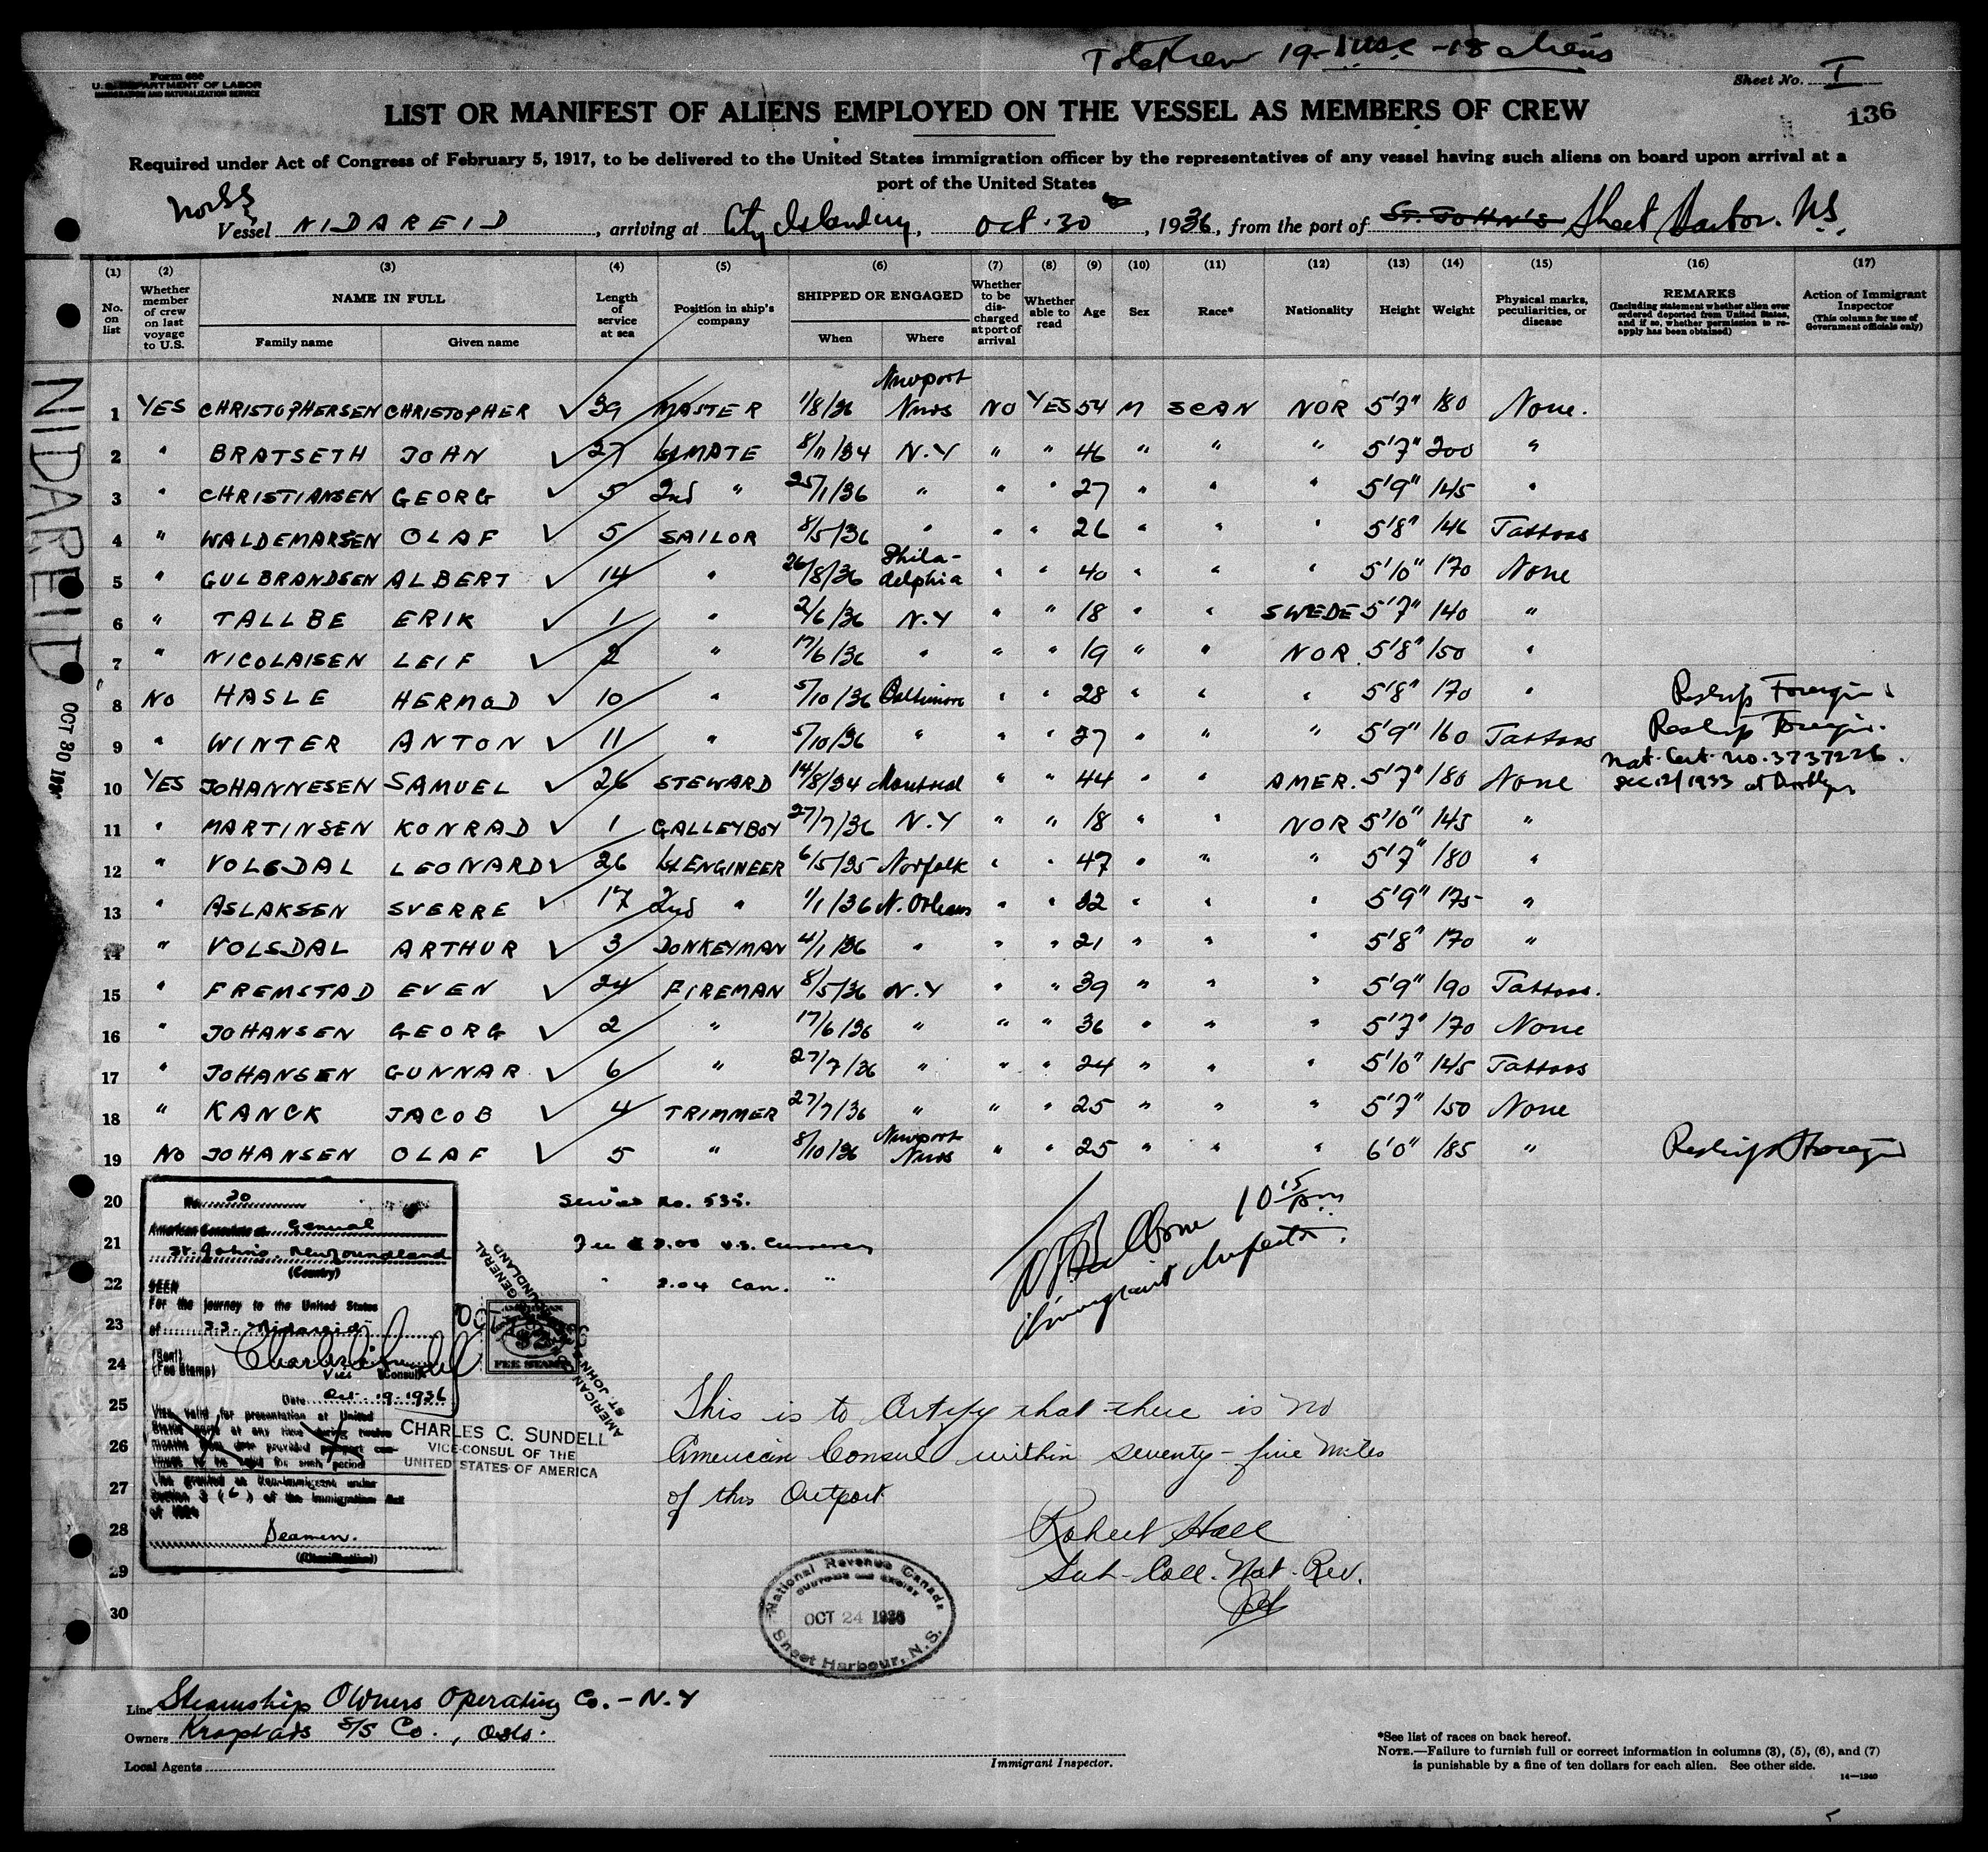 Total Crew 19 - 1 USC - 18 aliens
Form 680
U.S. DEPARTMENT OF LABOR
IMMIGRATION AND NATURALIZATION SERVICE
Sheet No. I
136
LIST OR MANIFEST OF ALIENS EMPLOYED ON THE VESSEL AS MEMBERS OF CREW
Required under Act of Congress of February 5, 1917, to be delivered to the United States immigration officer by the representatives of any vessel having such aliens on board upon arrival at a
port of the United States
Vessel NIDAREID, arriving at City Island, Oct. 30, 1936, from the port of St. JOHN'S Sheet Harbor. N.S.
(1) (2) (3) (4) (5) (6) (7) (8) (9) (10) (11) (12) (13) (14) (15) (16) (17)
No. on list
Whether member of crew on last voyage to U.S.
NAME IN FULL
Family name Given name
Length of service at sea
Position in ship's company
SHIPPED OR ENGAGED
When Where
Whether to be discharged at port of arrival
Whether able to read
Age
Sex
Race*
Nationality
Height
Weight
Physical marks, peculiarities, or disease
REMARKS
(Including statement whether alien ever ordered deported from United States, and if so, whether permission to reapply has been obtained)
Action of Immigrant Inspector
(This column for use of Government officials only)
1 YES CHRISTOPHERSEN CHRISTOPHER ✓ 39 MASTER 1/8/36 Newport News NO YES 54 M SCAN NOR 5'7" 180 None.
2 " BRATSETH JOHN ✓ 27 1st MATE 8/11/34 N.Y " " 46 " " " 5'7" 200 "
3 " CHRISTIANSEN GEORG ✓ 5 2nd " 25/1/36 " " " 27 " " " 5'9" 145 "
4 " WALDEMARSEN OLAF ✓ 5 SAILOR 8/5/36 " " " 26 " " " 5'8" 146 Tattoos
5 " GULBRANDSEN ALBERT ✓ 14 " 26/8/36 Philadelphia " " 40 " " " 5'10" 170 None
6 " TALLBE ERIK ✓ 1 " 2/6/36 N.Y " " 18 " " SWEDE 5'7" 140 "
7 " NICOLAISEN LEIF ✓ 2 " 17/6/36 " " " 19 " " NOR. 5'8" 150 "
8 NO HASLE HERMOD ✓ 10 " 5/10/36 Baltimore " " 28 " " " 5'8" 170 " Reship Foreign
9 " WINTER ANTON ✓ 11 " 5/10/36 " " " 27 " " " 5'9" 160 Tattoos Reship Foreign.
10 YES JOHANNESEN SAMUEL ✓ 26 STEWARD 14/8/34 Montreal " " 44 " " AMER. 5'7" 180 None Nat. Cert. No. 3737226. Dec 12/1933 at Brooklyn
11 " MARTINSEN KONRAD ✓ 1 GALLEYBOY 27/7/36 N.Y " " 18 " " NOR 5'10" 145 "
12 " VOLSDAL LEONARD ✓ 26 1st ENGINEER 6/5/35 Norfolk " " 47 " " " 5'7" 180 "
13 " ASLAKSEN SVERRE ✓ 17 2nd " 1/1/36 N. Orleans " " 32 " " " 5'9" 175 "
14 " VOLSDAL ARTHUR ✓ 3 DONKEYMAN 4/1/36 " " " 21 " " " 5'8" 170 "
15 " FREMSTAD EVEN ✓ 24 FIREMAN 8/5/36 N.Y " " 39 " " " 5'9" 190 Tattoos.
16 " JOHANSEN GEORG ✓ 2 " 17/6/36 " " " 36 " " " 5'7" 170 None
17 " JOHANSEN GUNNAR ✓ 6 " 27/7/36 " " " 24 " " " 5'10" 145 Tattoos
18 " KANCK JACOB ✓ 4 TRIMMER 27/7/36 " " " 25 " " " 5'7" 150 None
19 NO JOHANSEN OLAF ✓ 5 " 8/10/36 Newport News " " 25 " " " 6'0" 185 " Reship Foreign
20
21
22
23
24
25
26
27
28
29
30
NIDAREID
OCT 30 1936
No. 20
American Consulate General
St. John's, Newfoundland
(Country)
SEEN
For the journey to the United States
of S.S. Nidareid
(Seal)
(Fee Stamp)
Vice Consul
Date Oct. 19. 1936
Visa valid for presentation at United
States ports at any time during twelve
months from date provided passport con-
tinues to be valid for such period
Visa granted as Non-immigrant under
Section 3 (6) of the Immigration Act
of 1924
Seamen.
(Classification)
CHARLES C. SUNDELL
VICE-CONSUL OF THE
UNITED STATES OF AMERICA
Service No. 535.
Fee $ 2.00 U.S. Currency
" 2.04 Can. "
AMERICAN
$2
FEE STAMP
10 15 pm
Immigrant Inspector.
This is to Certify that there is no
American Consul within seventy-five miles
of this Outport
Robert Hall
Sub-Coll. Nat. Rev.
National Revenue Canada
CUSTOMS AND EXCISE
OCT 24 1936
Sheet Harbour, N.S.
Line Steamship Owners Operating Co. - N.Y
Owners S/S Co., Oslo.
Local Agents
Immigrant Inspector.
*See list of races on back hereof.
NOTE.—Failure to furnish full or correct information in columns (3), (5), (6), and (7)
is punishable by a fine of ten dollars for each alien. See other side.
14—1240